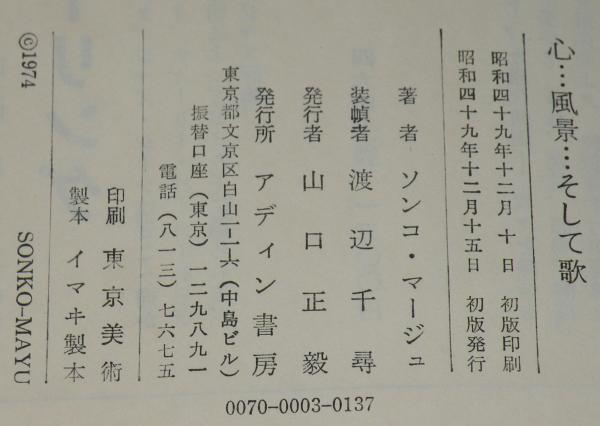 心…風景…そして歌
昭和四十九年十二月 十 日 初版印刷
昭和四十九年十二月十五日 初版発行
著 者 ソンコ・マージュ
装幀者 渡辺千尋
発行者 山口正毅
発行所 アディン書房
東京都文京区白山一-一-六(中島ビル)
振替口座(東京)一二九八九一
電話(八一三)七六七五
印刷 東京美術
製本 イマヰ製本
©1974 SONKO-MAYU
0070-0003-0137